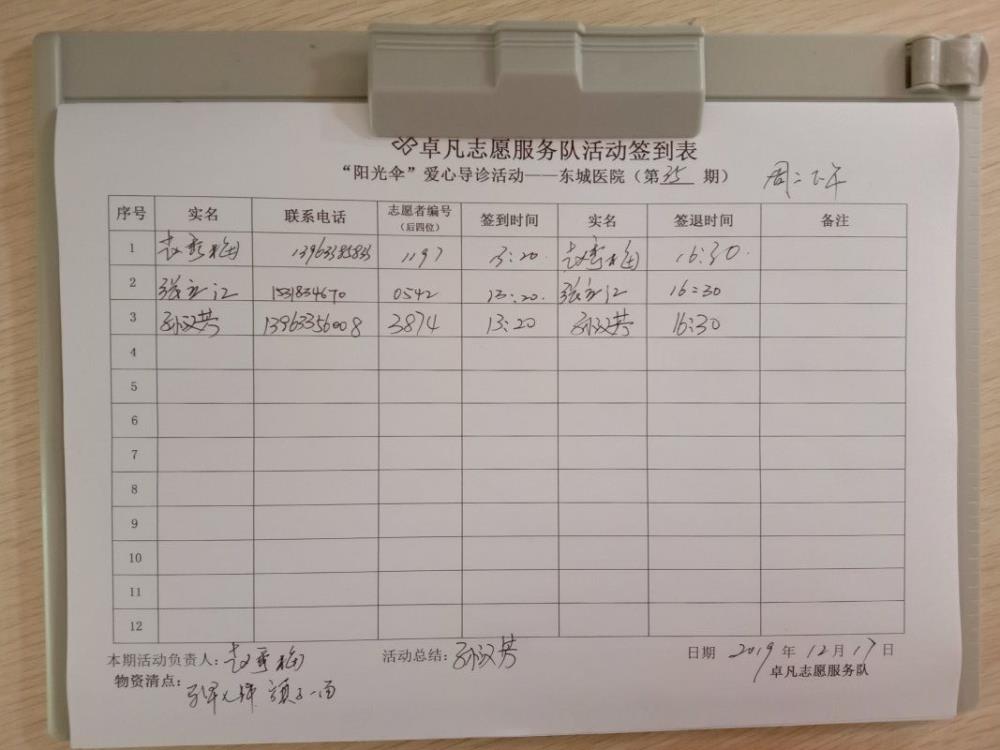 卓凡志愿服务队活动签到表
“阳光伞”爱心导诊活动——东城医院（第 35 期） 周二下午
序号 实名 联系电话 志愿者编号（后四位） 签到时间 实名 签退时间 备注
1 赵秀梅 1197 13:20 赵秀梅 16:30
2 张立江 1531834670 0542 13:20 张立江 16:30
3 孙汉芳 13963356008 3874 13:20 孙汉芳 16:30
4
5
6
7
8
9
10
11
12
本期活动负责人：赵秀梅 活动总结：孙汉芳 日期 2019 年 12 月 17 日
物资清点： 卓凡志愿服务队